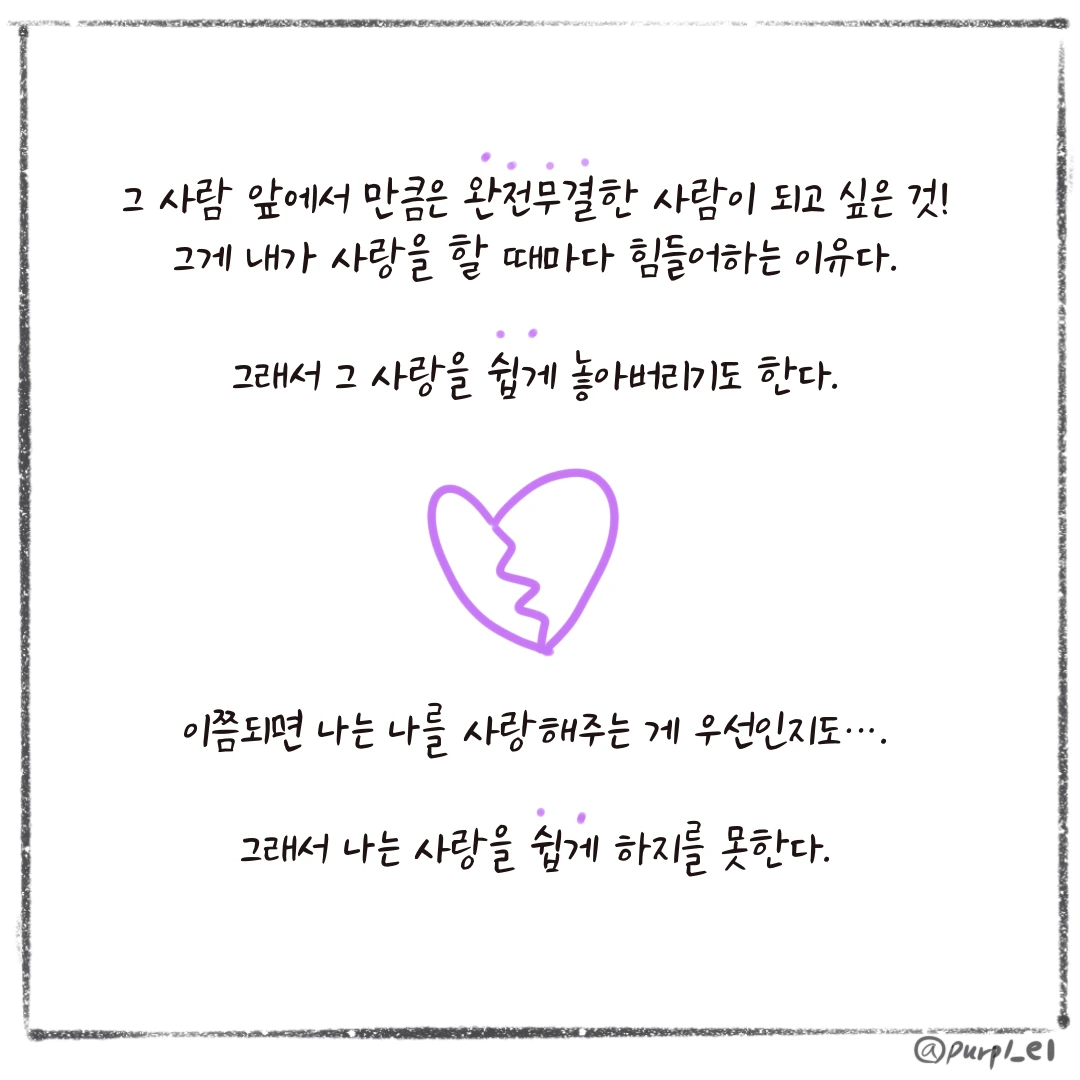 그 사람 앞에서 만큼은 완전무결한 사람이 되고 싶은 것!
그게 내가 사랑을 할 때마다 힘들어하는 이유다.
그래서 그 사랑을 쉽게 놓아버리기도 한다.
이쯤되면 나는 나를 사랑해주는 게 우선인지도….
그래서 나는 사랑을 쉽게 하지를 못한다.
@purpl_el